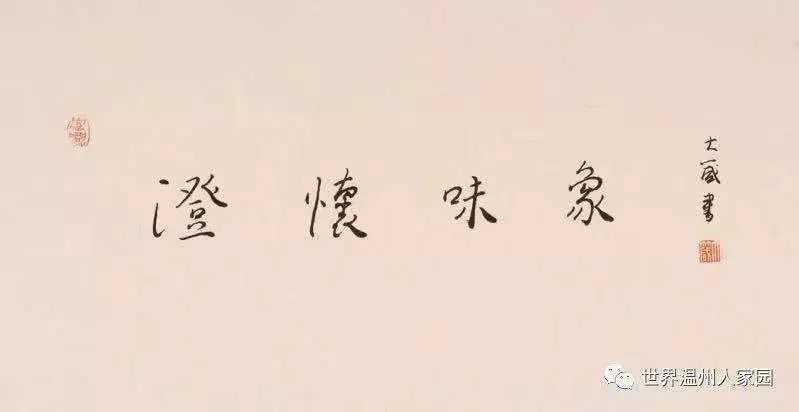 澄懷味象
大盛書
世界温州人家园